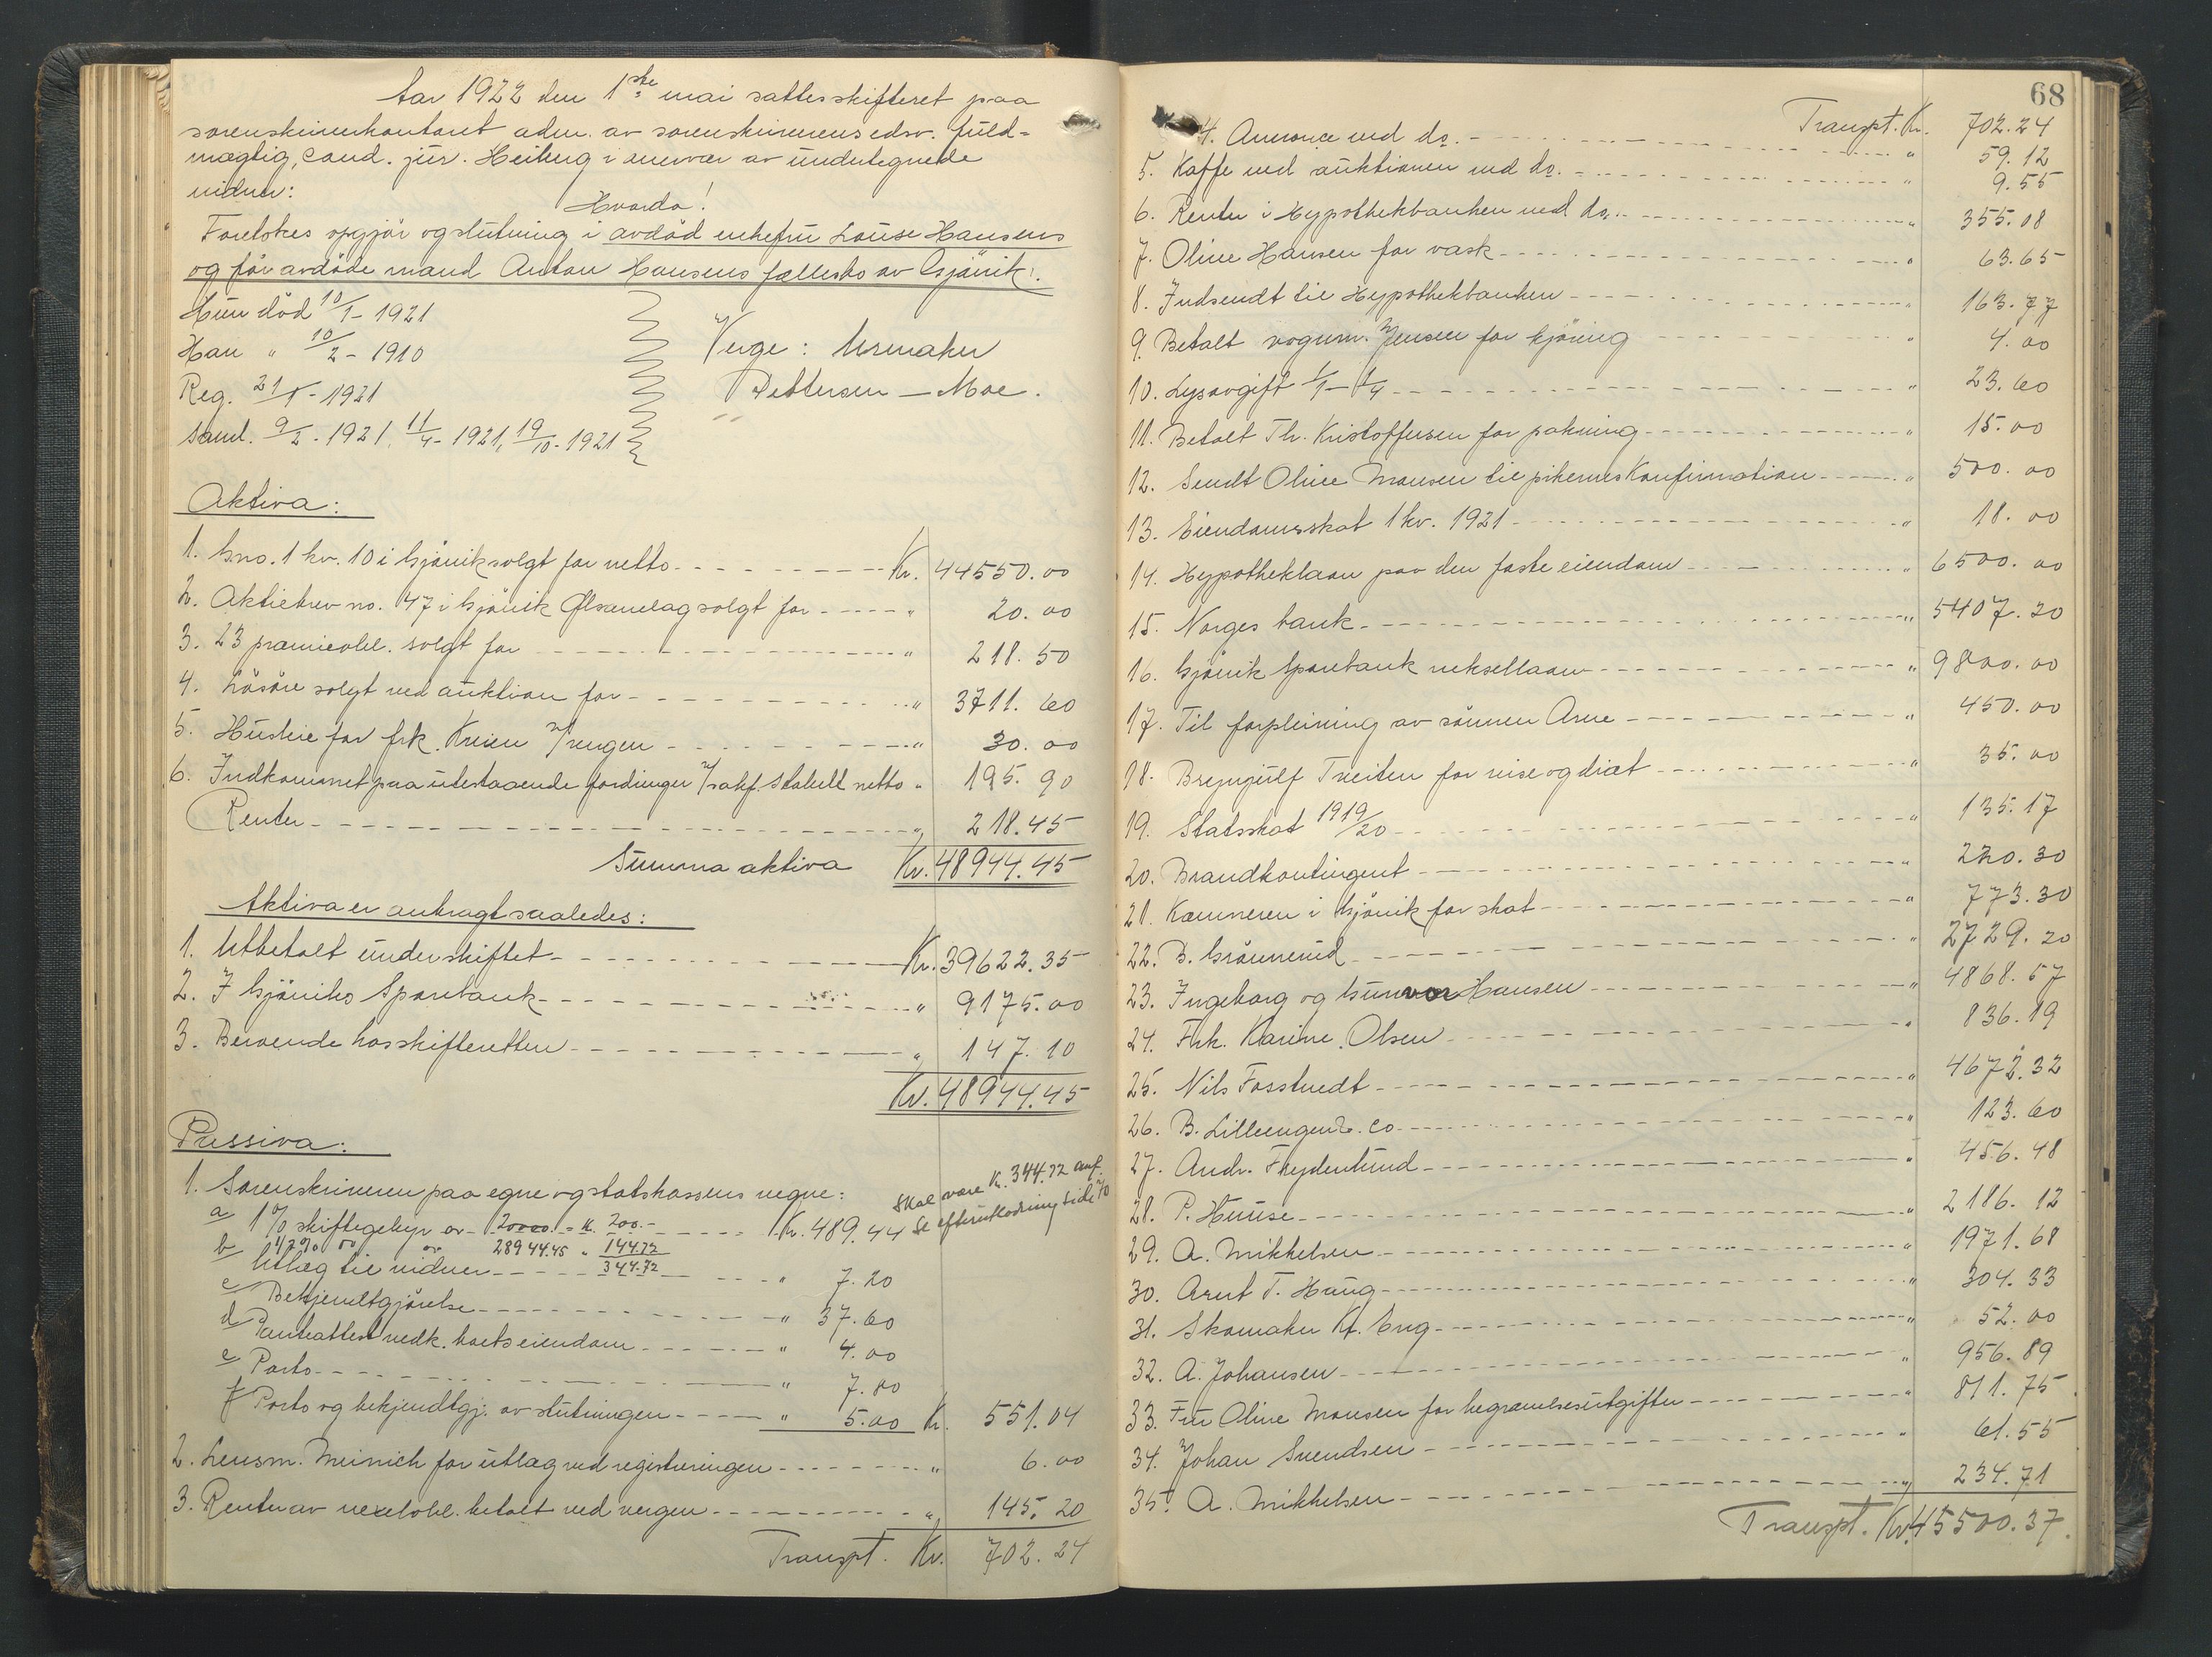 Aar 1922 den 1ste mai sattes skifteret paa
sorenskriverkontoret adm. av sorenskriverens edsv. fuld-
mægtig, cand. jur. Heiberg i overvær av undertegnede
vidner:
Hvorda!
Foretokes opgjör og slutning i avdöd enkefru Louise Hansens
og för avdöde mand Anton Hansens fællesbo av Gjövik.
Hun död 10/1 - 1921
Han " 10/2 - 1910
Reg. 21/1 - 1921
Saml. 9/2 - 1921, 11/4 - 1921, 19/10 - 1921
Verge: Urmaker
Pettersen - Moe.
Aktiva:
1. Gno. 1 kv. 10 i Gjövik solgt for netto Kr. 44550.00
2. Aktiebrev no. 47 i Gjövik Ølsamlag solgt for " 20.00
3. 23 præmieobl. solgt for " 218.50
4. Lösöre solgt ved auktion for " 3711.60
5. Husleie for frk. Kreien v/vergen " 30.00
6. Indkommet paa utestaaende fordringer v/sakf. Stabell netto " 195.90
Renter " 218.45
Summa aktiva Kr. 48944.45
Aktiva er anbragt saaledes:
1. Utbetalt under skiftet Kr. 39622.35
2. I Gjöviks Sparebank " 9175.00
3. Beroende hos skifteretten " 147.10
Kr. 48944.45
Passiva:
1. Sorenskriveren paa egne og statskassens vegne:
Skal være Kr. 344.72 anf.
Se efterutlodning side 70
a 1% skiftegebyr av 20000 = K. 200.- Kr. 489.44
1/2% do av 28944.45 " 144.72
344.72
b Utlæg til vidner " 7.20
c Bekjendtgjörelse " 37.60
d Panteattest vedk. boets eiendom " 4.00
e Porto " 7.80
f Porto og bekjendtgj. av slutningen " 5.00 Kr. 551.04
2. Lensm. Meinich for utlæg ved registreringen " 6.00
3. Renter av vexelobl. betalt ved vergen " 145.20
Transpt. Kr. 702.24
68
Transpt. Kr. 702.24
4. Anonce ved do. " 59.12
5. Kaffe ved auktionen ved do. " 9.55
6. Renter i Hypothekbanken ved do. " 355.08
7. Oline Hansen for vask " 63.65
8. Indsendt til Hypothekbanken " 163.77
9. Betalt vognm. Jensen for kjöring " 4.00
10. Lysavgift 1/1 - 1/4 " 23.60
11. Betalt Th. Kristoffersen for pakning " 15.00
12. Sendt Oline Monsen til pikernes Konfirmation " 500.00
13. Eiendomsskat 1 kv. 1921 " 18.00
14. Hypotheklaan paa den faste eiendom " 6500.00
15. Norges bank " 5407.20
16. Gjövik Sparebank veksellaan " 9800.00
17. Til forpleining av sönnen Arne " 450.00
18. Brynjulf Tveiten for reise og diæt " 35.00
19. Statsskat 1919/20 " 135.17
20. Brandkontingent " 220.30
21. Kæmneren i Gjövik for skat " 773.30
22. B. Grönnerud " 2729.20
23. Ingeborg og Gunvor Hansen " 4868.57
24. Frk. Karine Olsen " 836.19
25. Nils Fosstvedt " 4672.32
26. B. Lilleengen & Co. " 123.60
27. Andr. Frydenlund " 456.48
28. P. Huuse " 2186.12
29. A. Mikkelsen " 1971.68
30. Arnt T. Haug " 304.33
31. Skomaker Kr. Eng " 52.00
32. A. Johansen " 956.89
33. Fru Oline Monsen for begravelsesutgifter " 811.75
34. Johan Svendsen " 61.55
35. A. Mikkelsen " 234.71
Transpt. Kr. 45500.37.